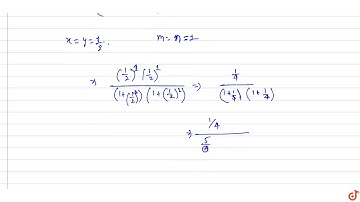 x = y = 1/2. m = n = 1
⇒ (1/2)^1 (1/2)^1 / (1+(1/2)^2) (1+(1/2)^2) ⇒ 1/4 / (1+1/4) (1+1/4)
⇒ 1/4 / 5/